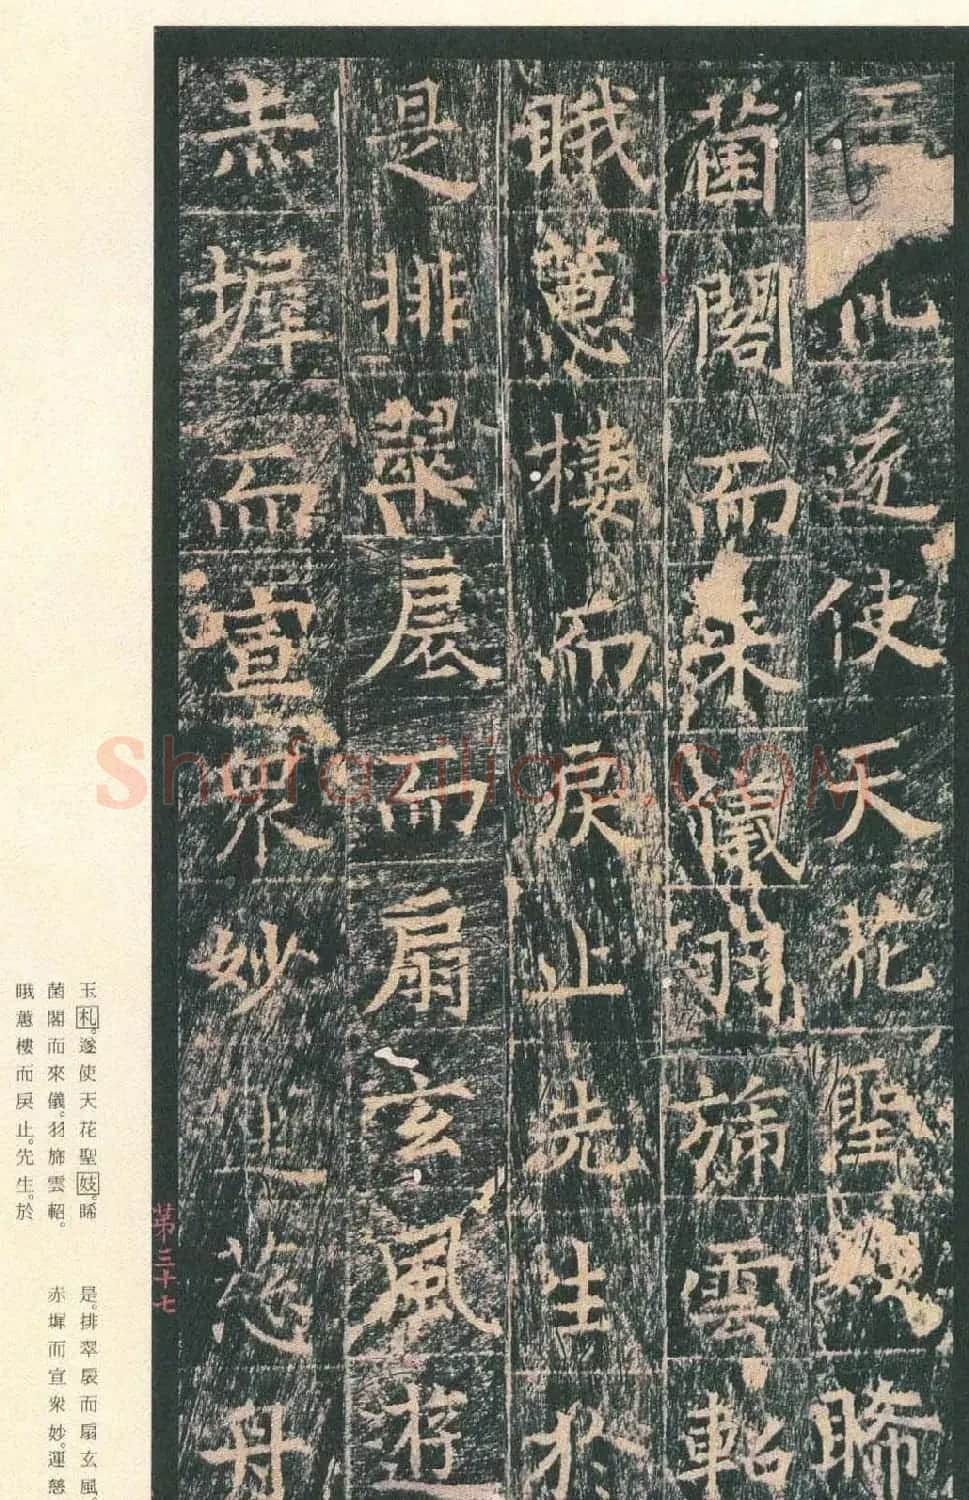 玉札遂使天花聖妓睎
菌閣而来儀羽旆雲軺
睋蕙樓而戾止先生於
是排翠扆而扇玄風游
赤墀而宣衆妙運慈舟
第三十七
Shufaziliao.COM
玉札。遂使天花聖妓。睎
菌閣而來儀。羽旆雲軺。
睋蕙樓而戾止。先生。於
是。排翠扆而扇玄風。
赤墀而宣衆妙。運慈